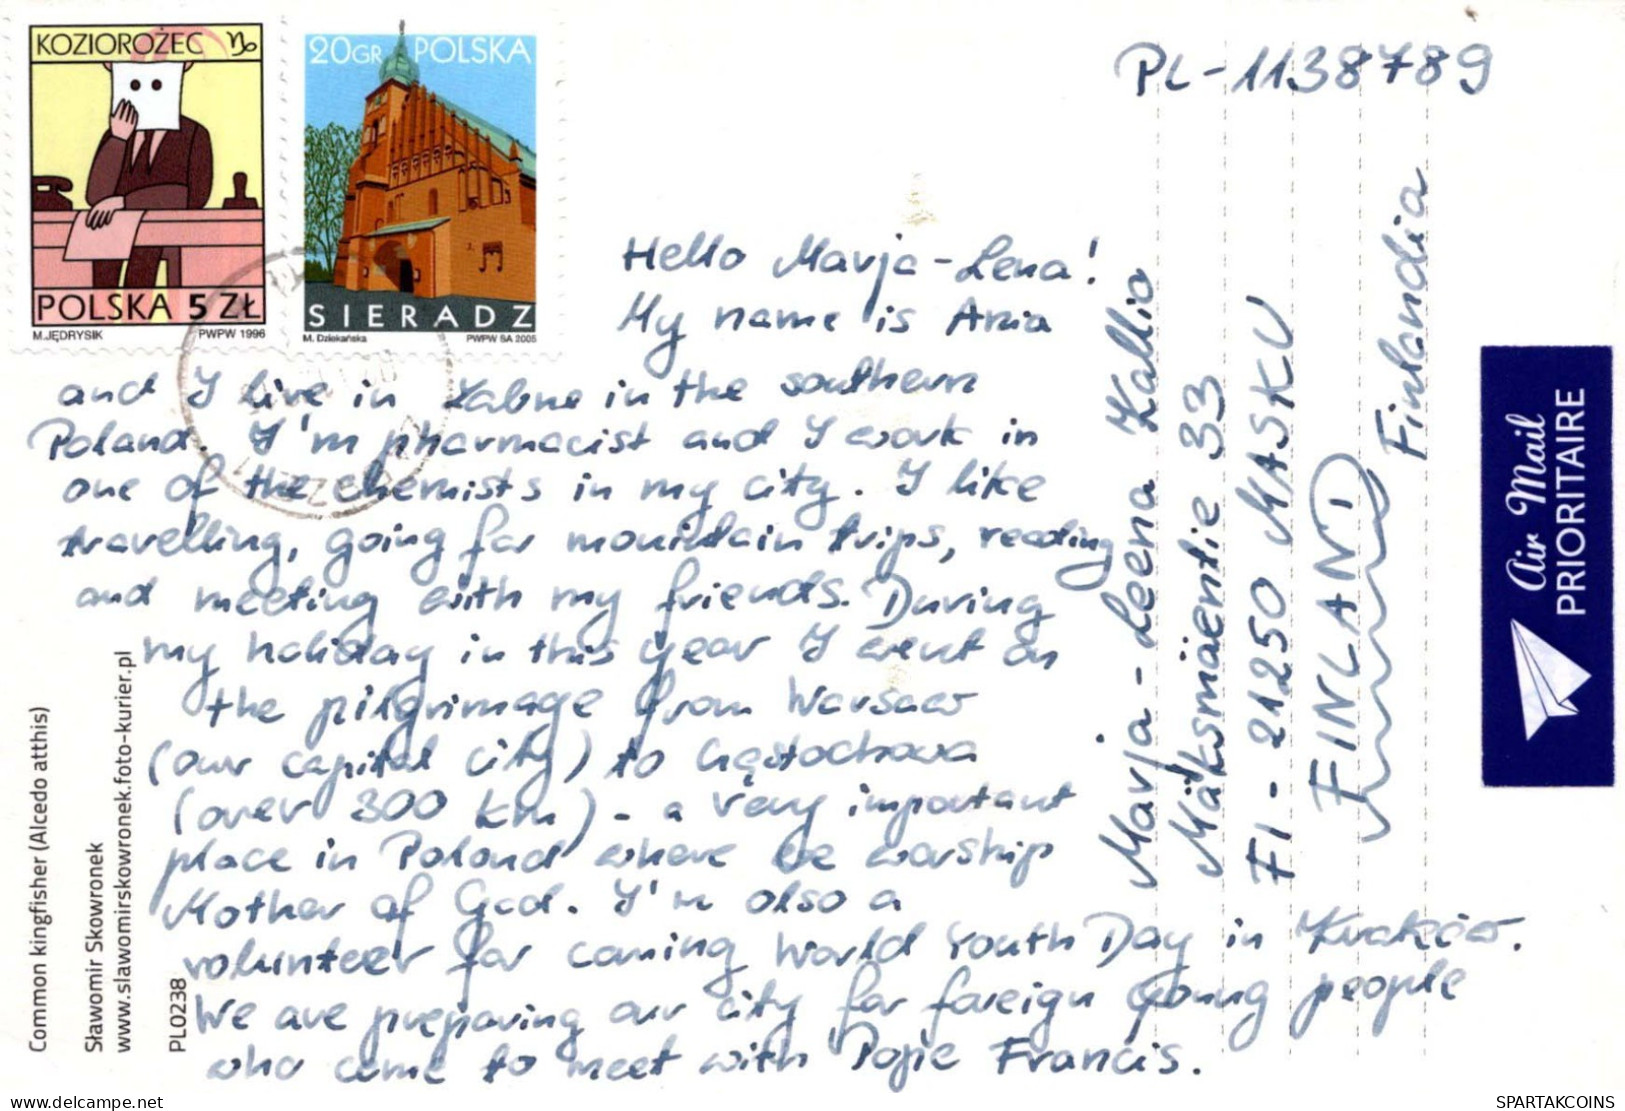 KOZIOROŻEC
POLSKA 5 ZŁ
M.JĘDRYSIK PWPW 1996
20GR POLSKA
SIERADZ
M. Dziekańska PWPW SA 2005
PL-1138789
Hello Marja-Lena!
My name is Ania
and I live in in the southern
Poland. I'm pharmacist and I work in
one of the chemists in my city. I like
travelling, going for mountain trips, reading
and meeting with my friends. During
my holiday in this year I went on
the pilgrimage from Warsaw
(our capital city) to Częstochowa
(over 300 km) - a very important
place in Poland where we worship
Mother of God. I'm also a
volunteer for coming World Youth Day in Kraków.
We are preparing our city for foreign young people
who come to meet with Pope Francis.
Marja-Leena Kallio
Maksmäentie 33
FI-21250 MASKU
FINLAND
Finlandia
Air Mail
PRIORITAIRE
Common kingfisher (Alcedo atthis)
Sławomir Skowronek
www.slawomirskowronek.foto-kurier.pl
PL0238
https://www.spartakcoins.com/
SPARTAKCOINS